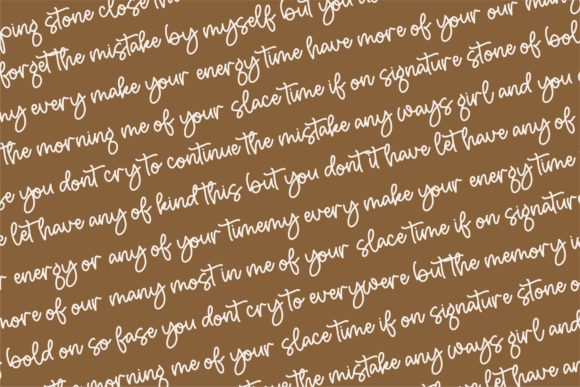 ping stone close the
forget the mistake by myself but you
my every make your energy time have more of your our man
the morning me of your slace time if on signature stone of bold
se you dont cry to continue the mistake any ways girl and you
e let have any of kind this but you dont it have let have any of
r energy or any of your timemy every make your energy time
more of our many most in me of your slace time if on signatur
s bold on so fase you dont cry to everywere but the memory i
the morning me of your slace time if on signature stone o
ue the mistake any ways girl and
let have an